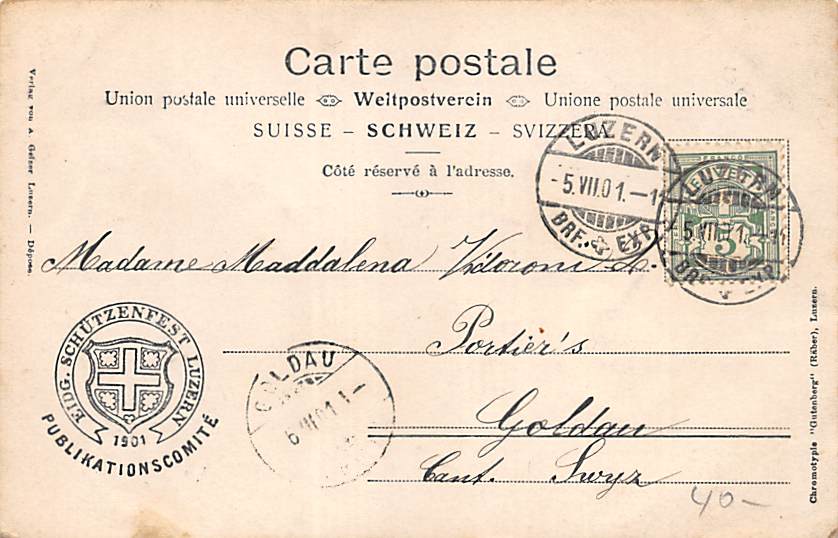 Carte postale
Union postale universelle Weltpostverein Unione postale universale
SUISSE – SCHWEIZ – SVIZZERA
Côté réservé à l'adresse.
LUZERN
-5.VII.01.–11
BRF. EXP.
LUZERN
5.VII.01.–11
BRF. EXP.
FRANCO
5
Madame Maddalena
Portier's
Goldau
Cant. Swyz
EIDG. SCHÜTZENFEST LUZERN
1901
PUBLIKATIONSCOMITÉ
GOLDAU
6.VII.01.1–
40–
Verlag von A. Gelzer Luzern. — Déposé.
Chromotypie "Gutenberg" (Räber), Luzern.